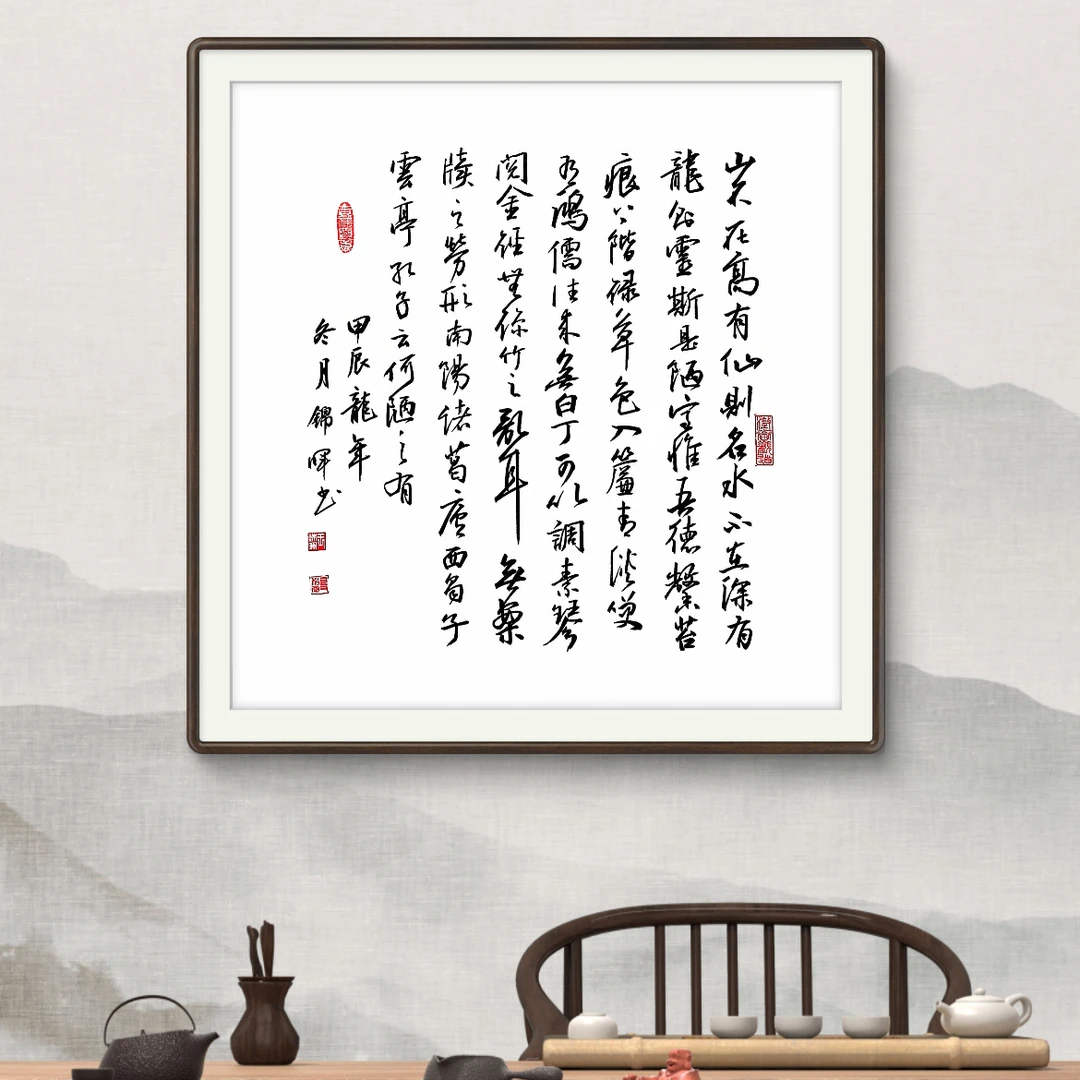 山不在高有仙則名水不在深有
龍則靈斯是陋室惟吾德馨苔
痕上階綠草色入簾青談笑
有鴻儒往來無白丁可以調素琴
閱金經無絲竹之亂耳無案
牘之勞形南陽諸葛廬西蜀子
雲亭孔子云何陋之有
甲辰龍年
冬月錦暉书